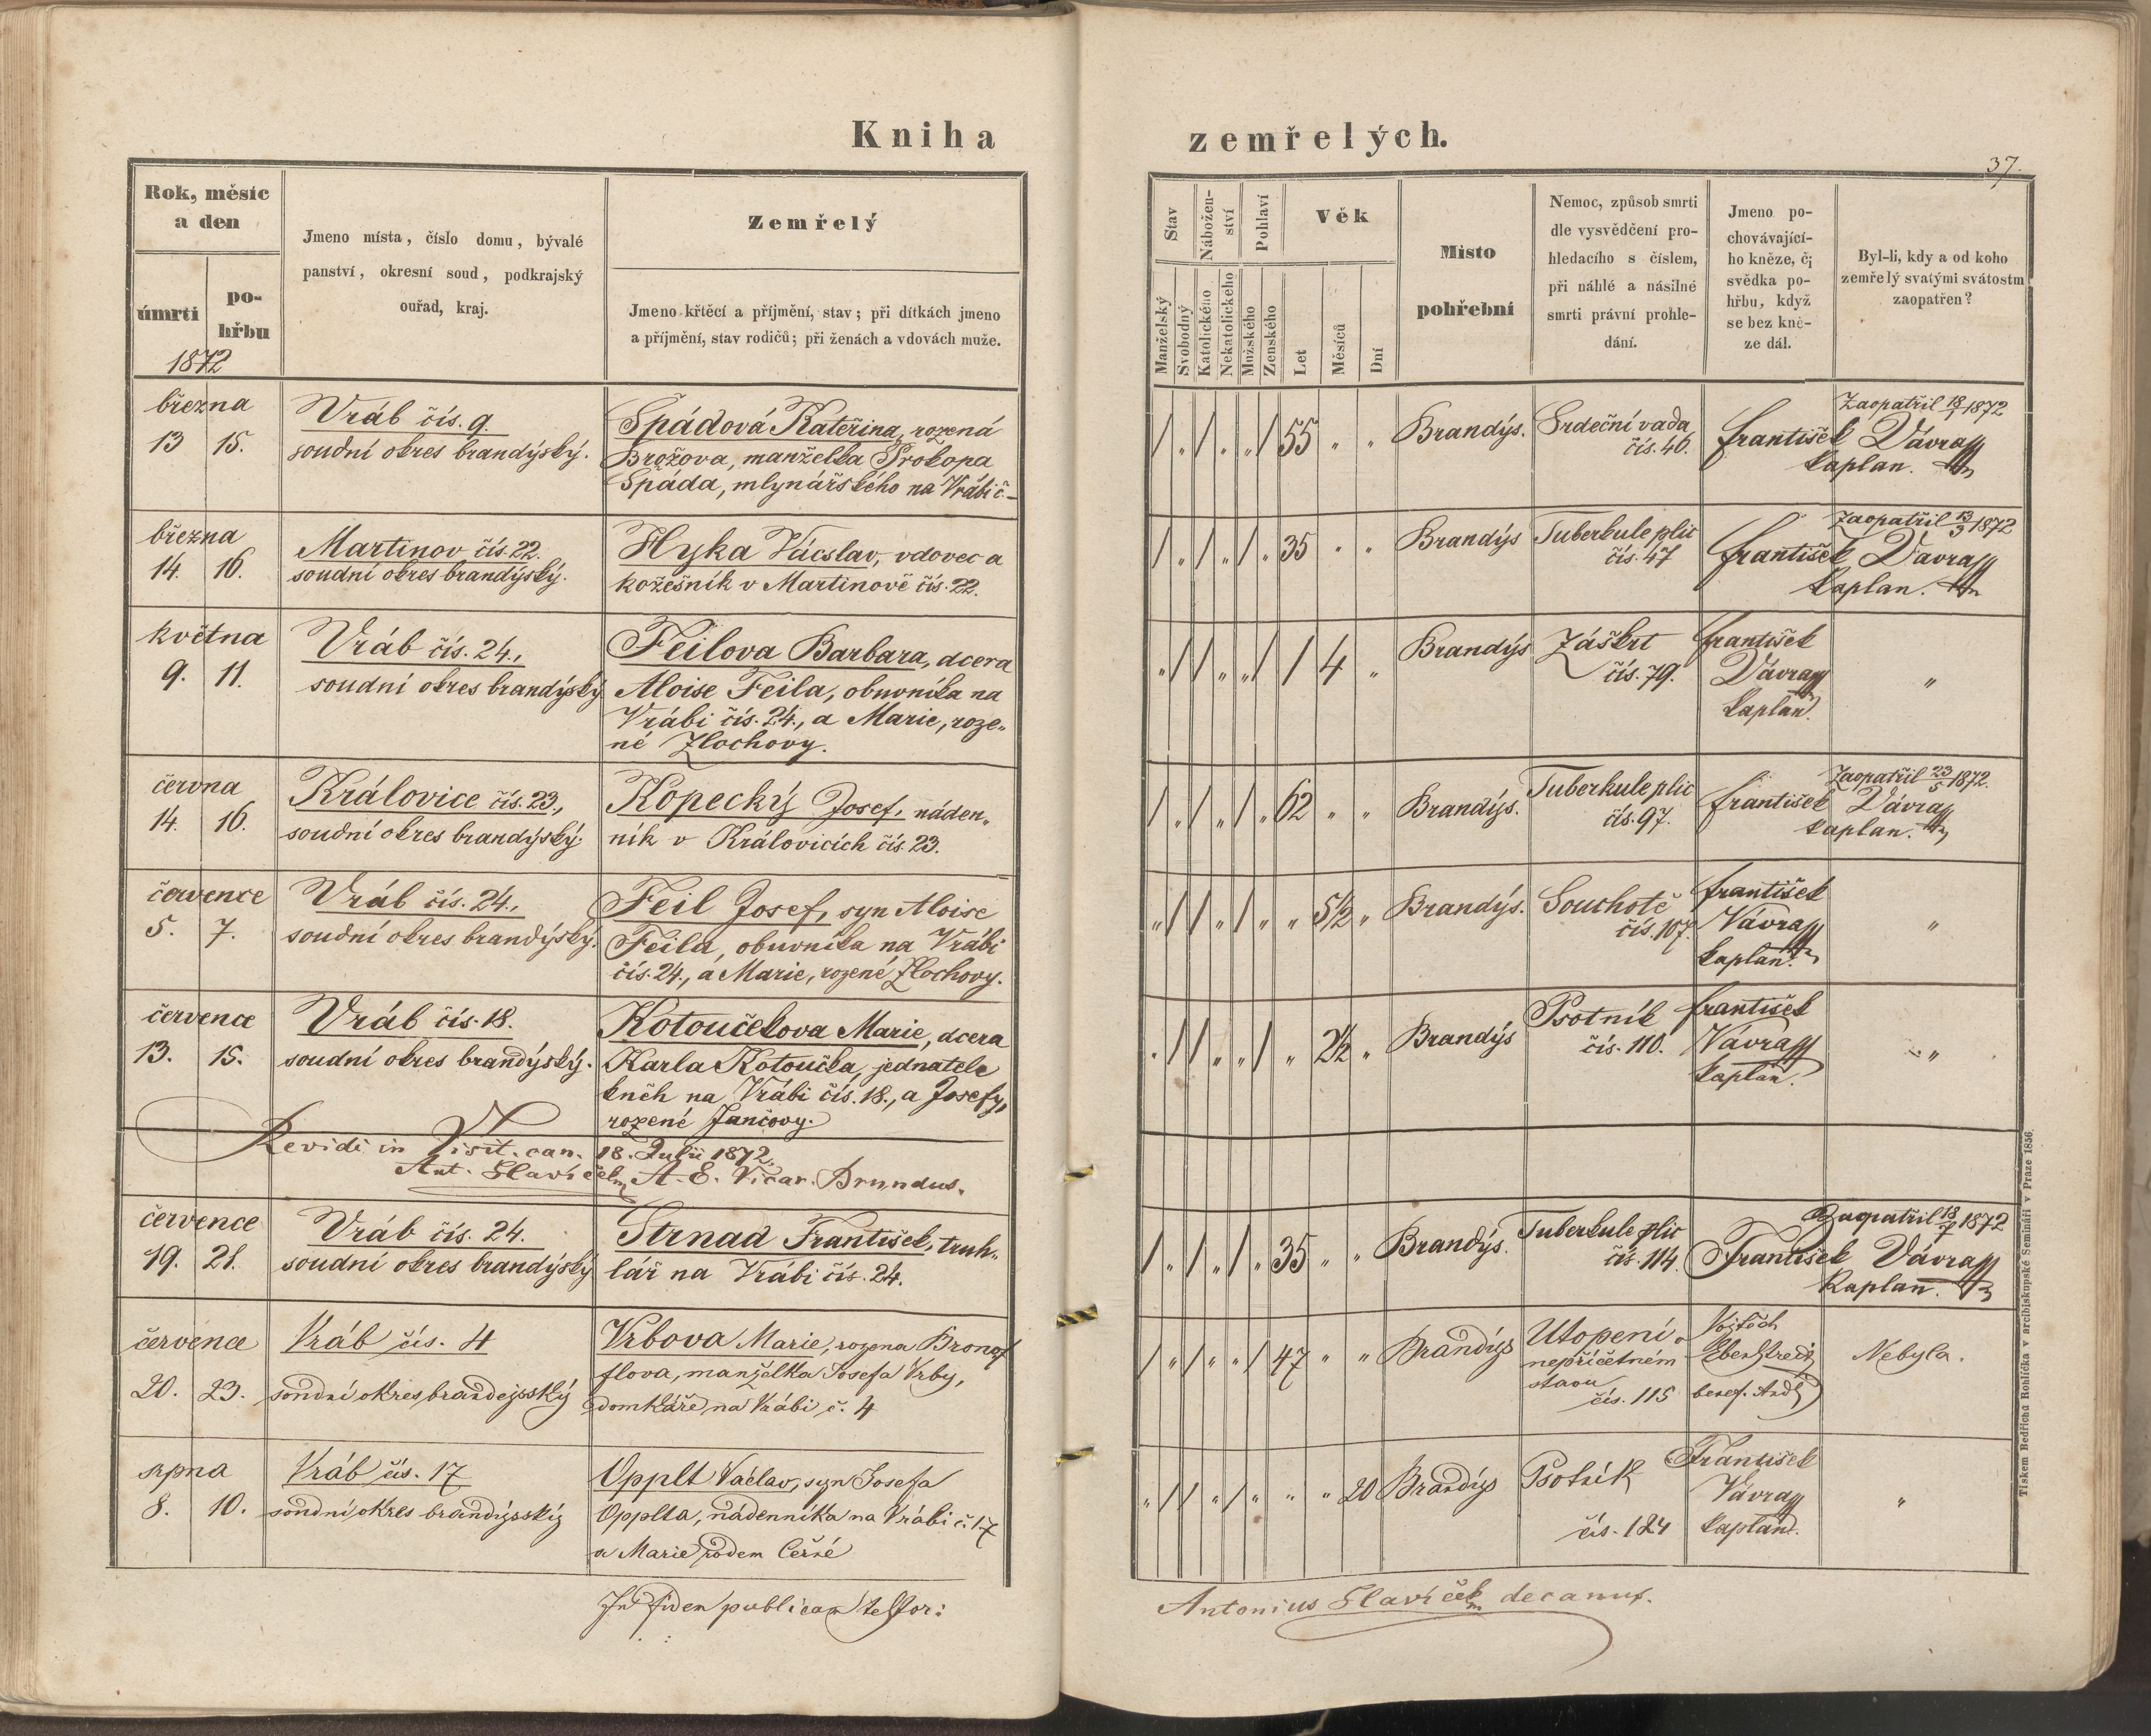 Kniha zemřelých.
37.
Rok, měsíc
a den
úmrtí
po-
hřbu
1872
Jmeno místa, číslo domu, bývalé
panství, okresní soud, podkrajský
ouřad, kraj.
Zemřelý
Jmeno křtěcí a příjmění, stav; při dítkách jmeno
a příjmění, stav rodičů; při ženách a vdovách muže.
Stav
Manželský
Svobodný
Nábožen-
ství
Katolického
Nekatolického
Pohlaví
Mužského
Ženského
Věk
Let
Měsíců
Dní
Místo
pohřební
Nemoc, způsob smrti
dle vysvědčení pro-
hledacího s číslem,
při náhlé a násilné
smrti právní prohle-
dání.
Jmeno po-
chovávající-
ho kněze, či
svědka po-
hřbu, když
se bez kně-
ze dál.
Byl-li, kdy a od koho
zemřelý svatými svátostm
zaopatřen?
března
13 15.
Vráb čís. 9.
soudní okres brandýský.
Spádová Kateřina, rozená
Brožova, manželka Prokopa
Spáda, mlynářského na Vrábi č-
/ „ / „ „ / 55 „ „
Brandýs.
Srdeční vada
čís. 46.
Zaopatřil 18/1 1872
František Vávra
kaplan.
března
14. 16.
Martinov čís. 22.
soudní okres brandýský.
Hyka Vácslav, vdovec a
kožešník v Martinově čís. 22.
/ „ / „ / „ 35 „ „
Brandýs
Tuberkule plic
čís. 47
Zaopatřil 13/3 1872
František Vávra
kaplan.
května
9. 11.
Vráb čís. 24.,
soudní okres brandýský
Feilova Barbara, dcera
Aloise Feila, obuvníka na
Vrábi čís. 24., a Marie, roze-
né Zlochovy.
„ / / „ „ / / 4 „
Brandýs
Záškrt
čís. 79.
František
Vávra
kaplan.
„
června
14. 16.
Královice čís. 23.,
soudní okres brandýský.
Kopecký Josef, náden-
ník v Královicích čís. 23.
/ „ / „ / „ 62 „ „
Brandýs.
Tuberkule plic
čís. 97.
Zaopatřil 23/5 1872.
František Vávra
kaplan.
července
5. 7.
Vráb čís. 24.,
soudní okres brandýský.
Feil Josef, syn Aloise
Feila, obuvníka na Vrábi
čís. 24., a Marie, rozené Zlochovy.
„ / / „ / „ „ 5½ „
Brandýs.
Souchotě
čís. 107.
František
Vávra
kaplan.
„
července
13. 15.
Vráb čís. 18.
soudní okres brandýský.
Kotoučekova Marie, dcera
Karla Kotoučka, jednatele
kněh na Vrábi čís. 18., a Josefy,
rozené Jančovy.
„ / / „ „ / „ 2½ „
Brandýs
Psotník
čís. 110.
František
Vávra
kaplan.
„
Revidi in Visit. can. 18. Julii 1872.
Ant. Slavíček, A. E. Vicar. Brundus.
července
19. 21.
Vráb čís. 24.
soudní okres brandýský
Strnad František, truh-
lář na Vrábi čís. 24.
/ „ / „ / „ 35 „ „
Brandýs.
Tuberkule plic
čís. 114.
Zaopatřil 18/7 1872
František Vávra
kaplan.
července
20. 23.
Vráb čís. 4
soudní okres brandejsský
Vrbova Marie, rozena
flova, manželka Josefa Vrby,
domkáře na Vrábi č. 4
/ „ / „ „ / 47 „ „
Brandýs
Utopení v
nepříčetném
stavu
čís. 115
Vojtěch
benef.
Nebyla.
srpna
8. 10.
Vráb čís. 17
soudní okres brandýsský
Opplt Vaclav, syn Josefa
Opplta, nádenníka na Vrábi č. 17
a Marie rodem Černé
„ / / „ / „ „ „ 20
Brandýs
Psotník
čís. 124
František
Vávra
kaplan.
„
In fidem publicam testor:
Antonius Slavíček decanus.
Tiskem Bedřicha Rohlíčka v arcibiskupské Semináři v Praze 1856.